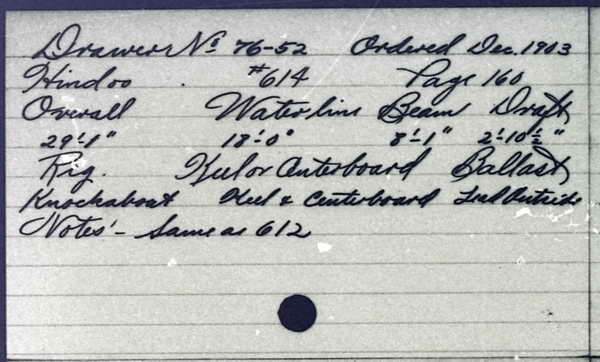 Drawer No 76-52 Ordered Dec. 1903
Hindoo . #614 Page 160
Overall Waterline Beam Draft
29'-1" 18'-0" 8'-1" 2'-10½"
Rig. Keel or Centerboard Ballast
Knockabout Keel & Centerboard Lead Outside
Notes:- Same as 612